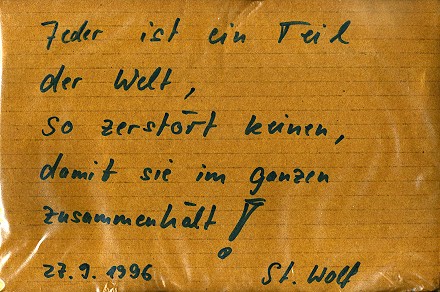 Jeder ist ein Teil
der Welt,
so zerstört keinen,
damit sie im ganzen
zusammenhält!
27.9.1996 St. Wolf